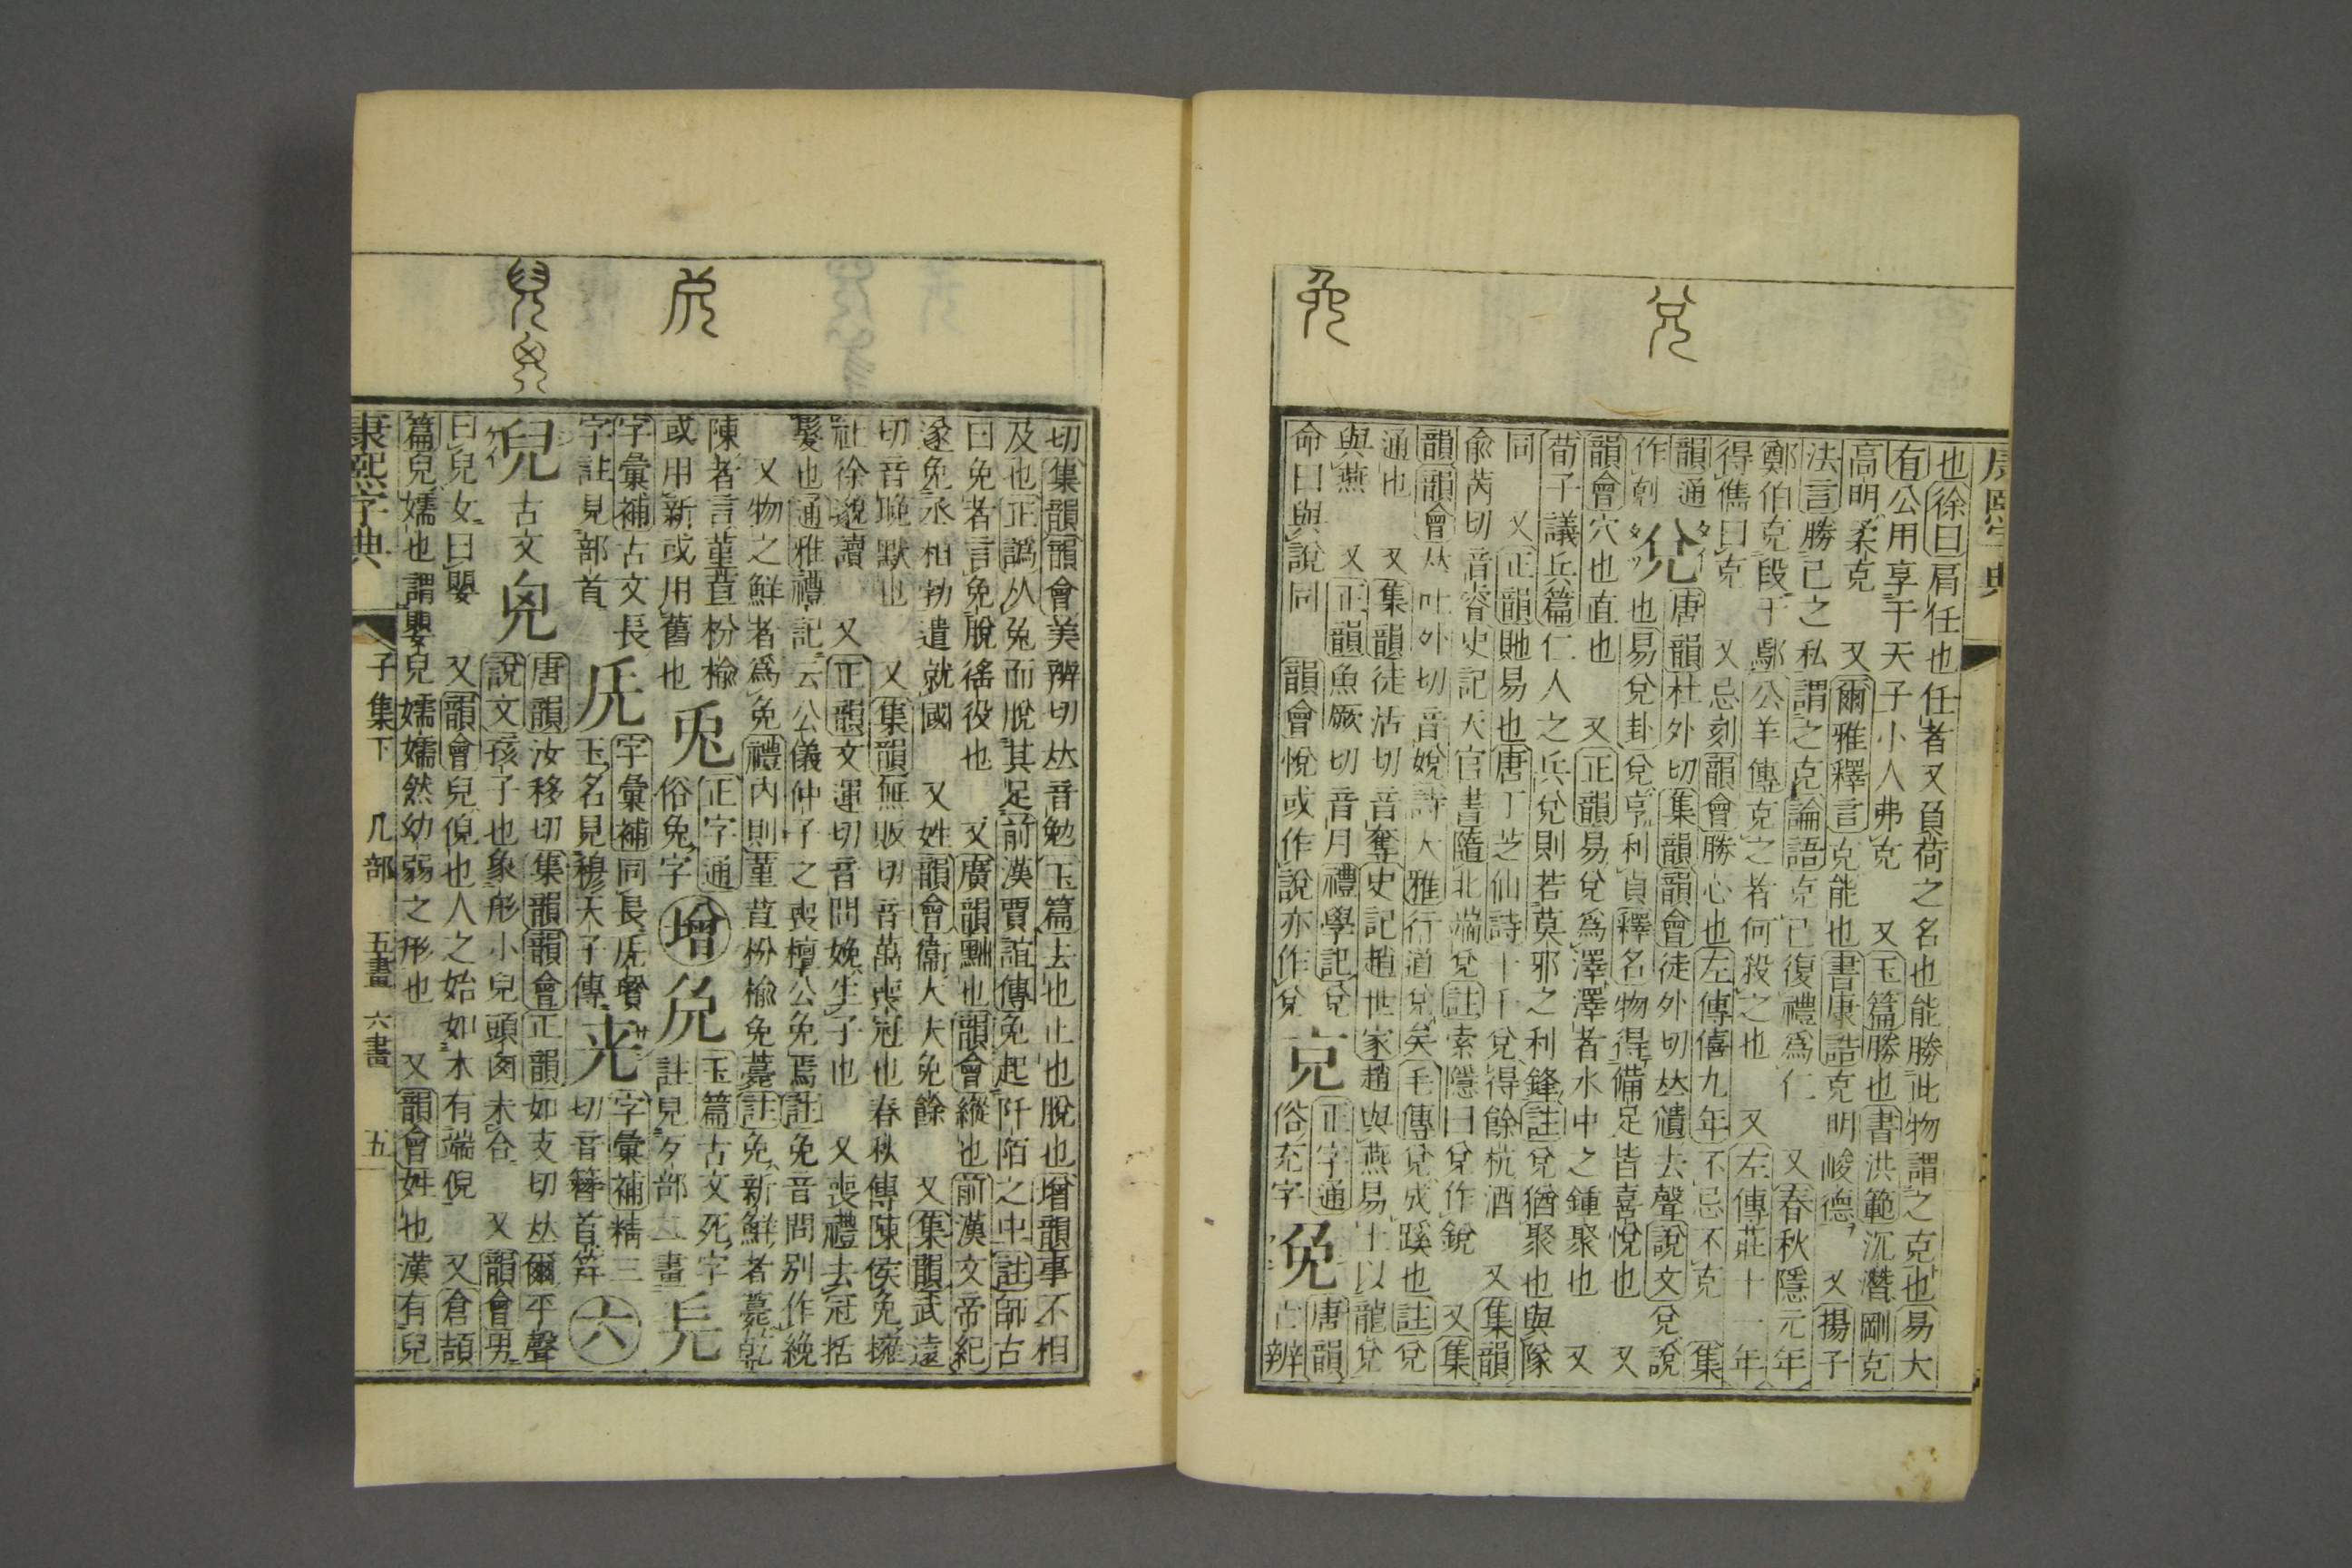 兌
免
康熙字典
也徐曰肩任也任者又負荷之名也能勝此物謂之克也易大
有公用享于天子小人弗克 又玉篇勝也書洪範沉潛剛克
高明柔克 又爾雅釋言克能也書康誥克明峻德 又揚子
法言勝己之私謂之克論語克己復禮爲仁 又春秋隱元年
鄭伯克段于鄢公羊傳克之者何殺之也 又左傳莊十一年
得儁曰克 又忌刻韻會勝心也左傳僖九年不忌不克 集
韻通作剋
兌
唐韻杜外切集韻韻會徒外切𠀤濻去聲說文兌說
也易兌卦兌亨利貞釋名物得備足皆喜悅也 又
韻會穴也直也 又正韻易兌爲澤澤者水中之鍾聚也 又
荀子議兵篇仁人之兵兌則若莫邪之利鋒註兌猶聚也與隊
同 又正韻貤易也唐丁芝仙詩十千兌得餘杭酒 又集韻
兪芮切音睿史記天官書隨北端兌註索隱曰兌作銳 又集
韻韻會𠀤吐外切音娧詩大雅行道兌矣毛傳兌成蹊也註兌
通也 又集韻徒活切音奪史記趙世家趙與燕易土以龍兌
與燕 又正韻魚厥切音月禮學記兌
命曰與說同 韻會悅或作說亦作兌
𠑽
正字通
俗充字
免
唐韻
亡辨
𠑷
兒𠒆
切集韻韻會美辨切𠀤音勉玉篇去也止也脫也增韻事不相
及也正譌从兔而脫其足前漢賈誼傳免起阡陌之中註師古
曰免者言免脫徭役也 又廣韻黜也韻會縱也前漢文帝紀
遂免丞相勃遣就國 又姓韻會衞大夫免餘 又集韻武遠
切音晚默也 又集韻無販切音萬喪冠也春秋傳陳侯免擁
社徐邈讀 又正韻文運切音問娩生子也 又喪禮去冠括
髮也通雅禮記云公儀仲子之喪檀公免焉註免音問別作絻
又物之鮮者爲免禮內則菫荁枌榆免薧註免新鮮者薧乾
陳者言菫荁枌榆
或用新或用舊也
兎
正字通
俗兔字
增
玉篇古文死字
註見歹部二畫
字彙補古文長
字註見部首
字彙補同長
玉名見穆天子傳
字彙補精三
切音簪首筓
六
兒
古文
唐韻汝移切集韻韻會正韻如支切𠀤爾平聲
說文孩子也象形小兒頭囟未合 又韻會男
曰兒女曰嬰 又韻會兒倪也人之始如木有端倪 又倉頡
篇兒嬬也謂嬰兒嬬嬬然幼弱之形也 又韻會姓也漢有兒
康熙字典 子集下 儿部 五畫 六畫 五